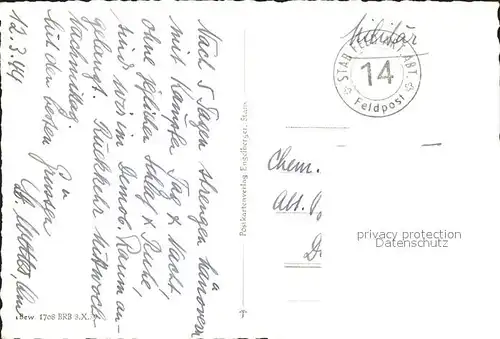 Nach 5 Tagen strengen Manöver
mit Kampf Tag & Nacht,
ohne jeglichen Schlaf & Ruhe,
sind wir im Demob. Raum an-
gelangt. Rückkehr Mittwoch
Nachmittag.
Mit den besten Grüssen
12.3.44
Militär
STAB
ABT.
14
Feldpost
Chem.
Abt.
Postkartenverlag Engelberger, Stans
Bew. 1708 BRB 3.X.
privacy protection
DANUBEARTS